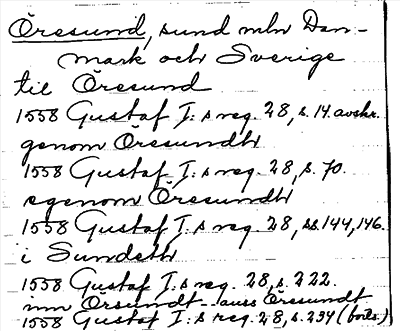 Öresund, sund mln Dan-
mark och Sverige
til Öresund
1558 Gustaf I:s reg. 28, s. 14. avskr.
genom Öresundtt
1558 Gustaf I:s reg. 28, s. 70.
egenom Öresundtt
1558 Gustaf I:s reg. 28, ss. 144, 146.
i Sundett
1558 Gustaf I:s reg. 28, s. 222.
inn Örsundt - auss Öresundt
1558 Gustaf I:s reg. 28, s. 234 (forts.)